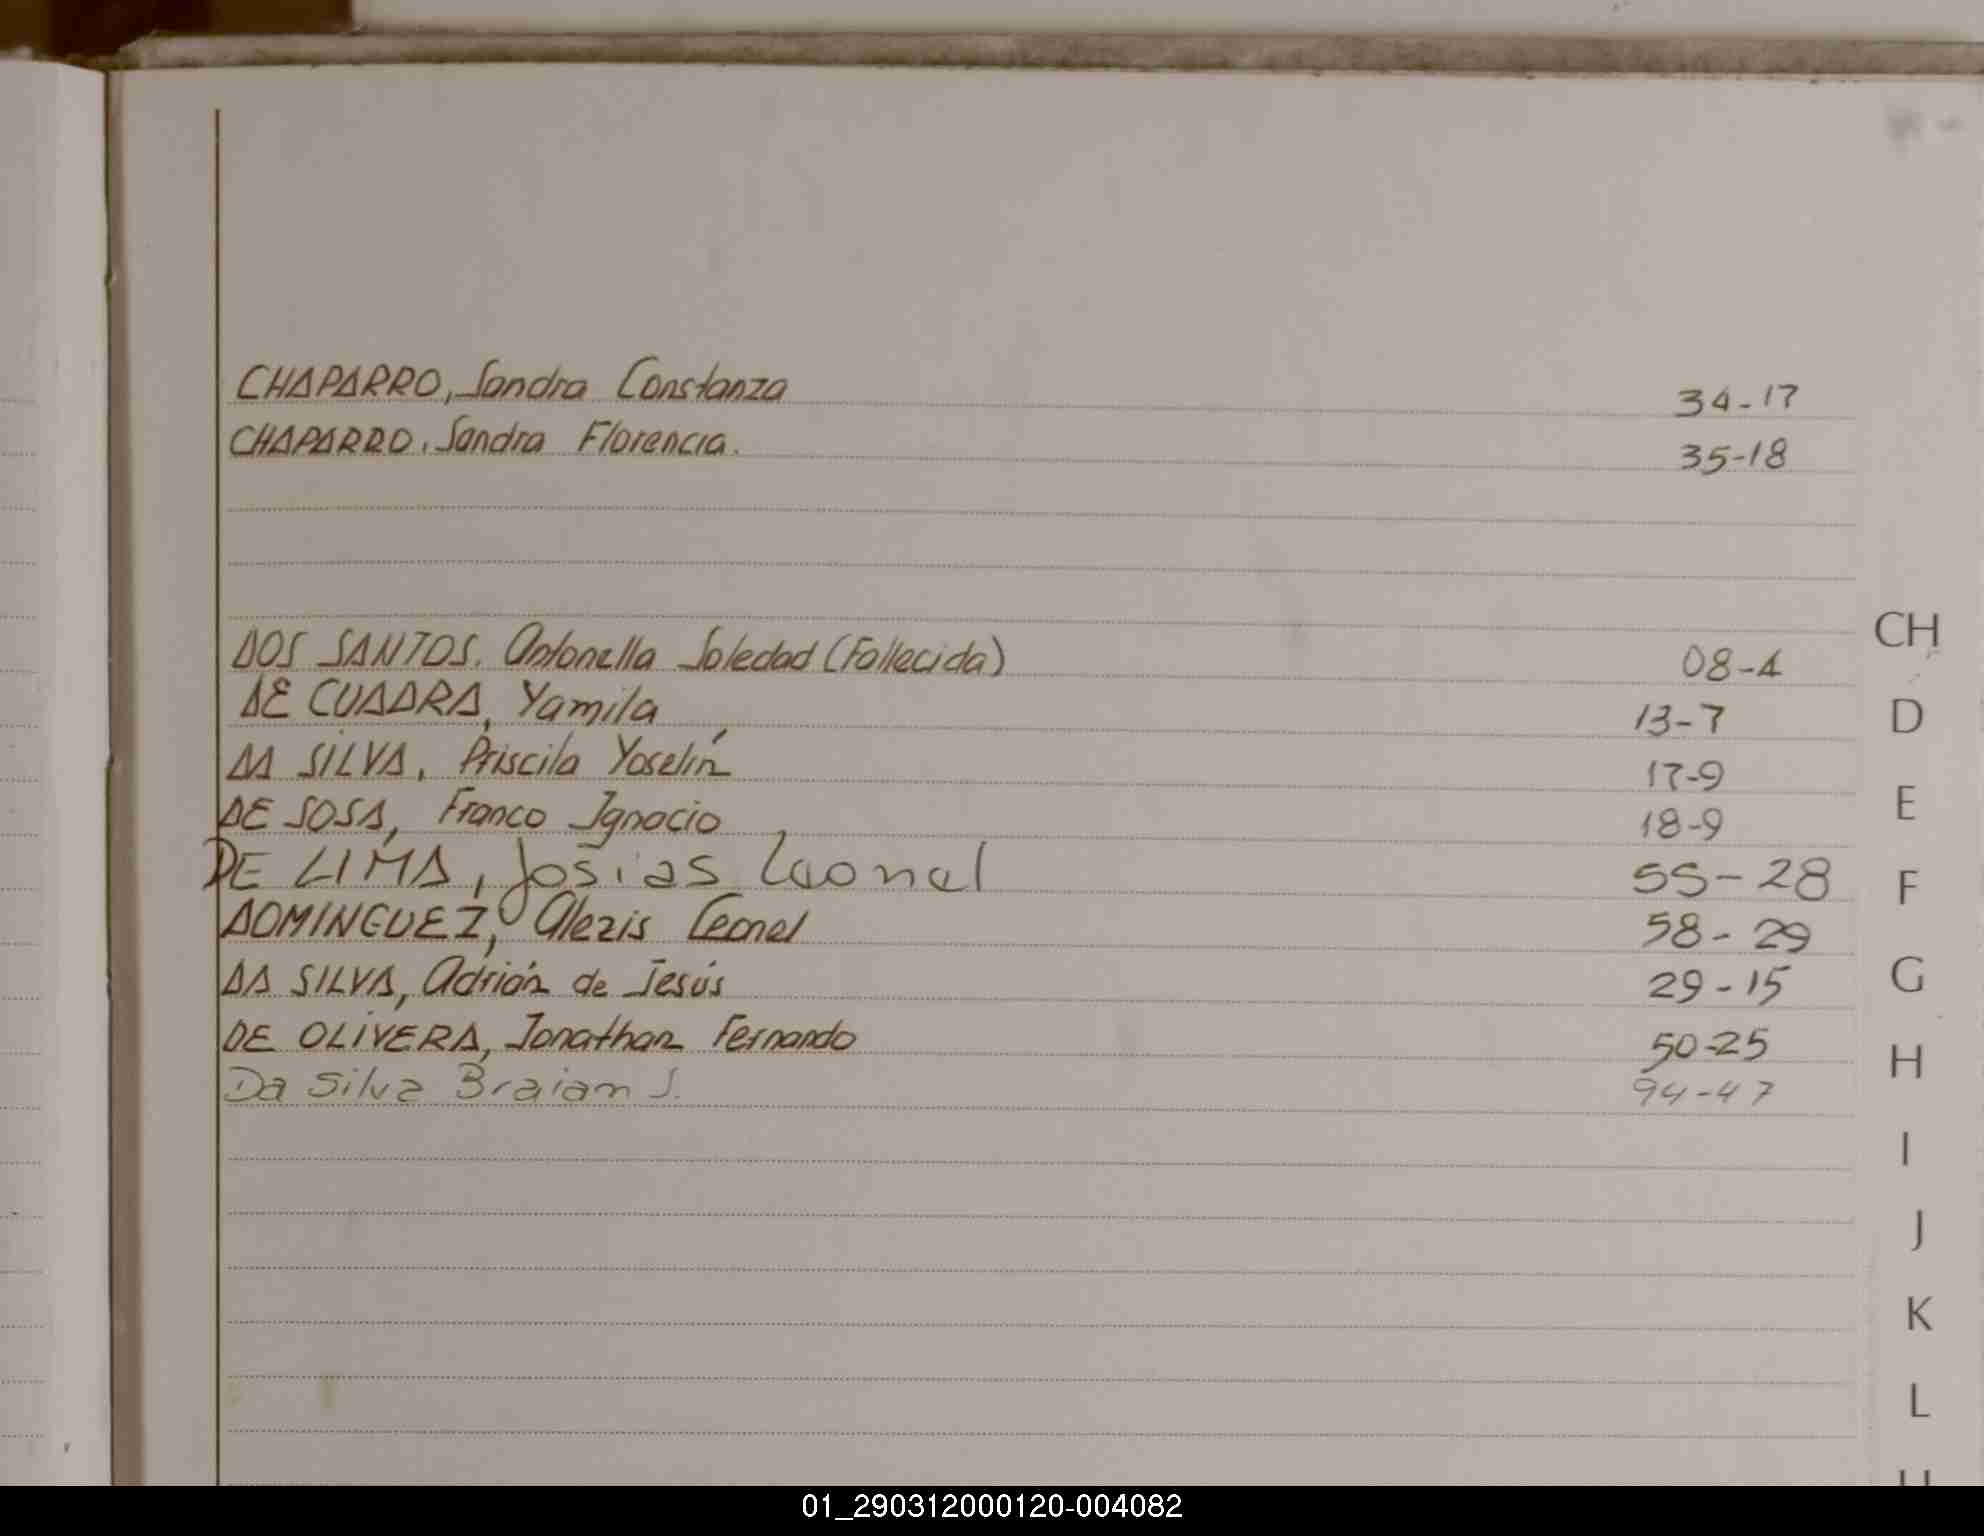 CHAPARRO, Sandra Constanza 34-17
CHAPARRO, Sandra Florencia. 35-18
DOS SANTOS, Antonella Soledad (Fallecida) 08-4
CH
DE CUADRA, Yamila 13-7
D
DA SILVA, Priscila Yoselín 17-9
E
DE SOSA, Franco Ignacio 18-9
DE LIMA, Josias Leonel 55-28
F
DOMINGUEZ, Alexis Leonel 58-29
DA SILVA, Adrián de Jesús 29-15
G
DE OLIVERA, Jonathan Fernando 50-25
H
Da Silva Braian J. 94-47
I
J
K
L
01_290312000120-004082